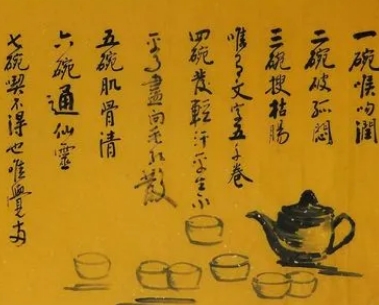 一碗喉吻潤
二碗破孤悶
三碗搜枯腸
唯有文字五千卷
四碗發輕汗平生不
平事盡向毛孔散
五碗肌骨清
六碗通仙靈
七碗喫不得也唯覺两